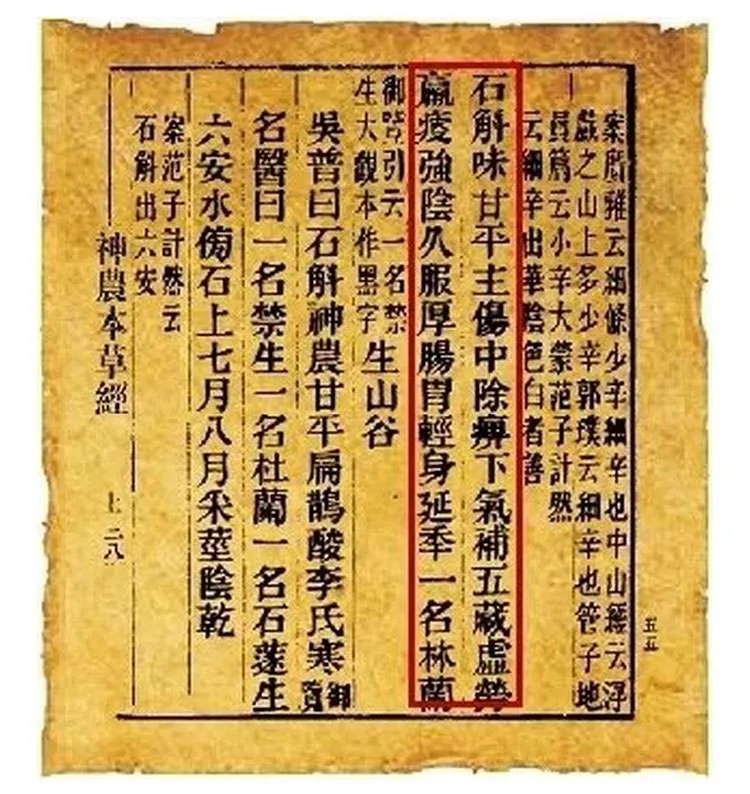 五五
案廣雅云細條少辛細辛也中山經云浮
戲之山上多少辛郭璞云細辛也管子地
員篇云小辛大蒙范子計然
云細辛出華陰色白者善
石斛味甘平主傷中除痹下氣補五藏虛勞
羸瘦強陰久服厚腸胃輕身延秊一名林蘭
御覽引云一名禁
生大觀本作黑字
生山谷
吳普曰石斛神農甘平扁鵲酸李氏寒御覽
名醫曰一名禁生一名杜蘭一名石蓫生
六安水傍石上七月八月采莖陰乾
案范子計然云
石斛出六安
神農本草經 上 二八